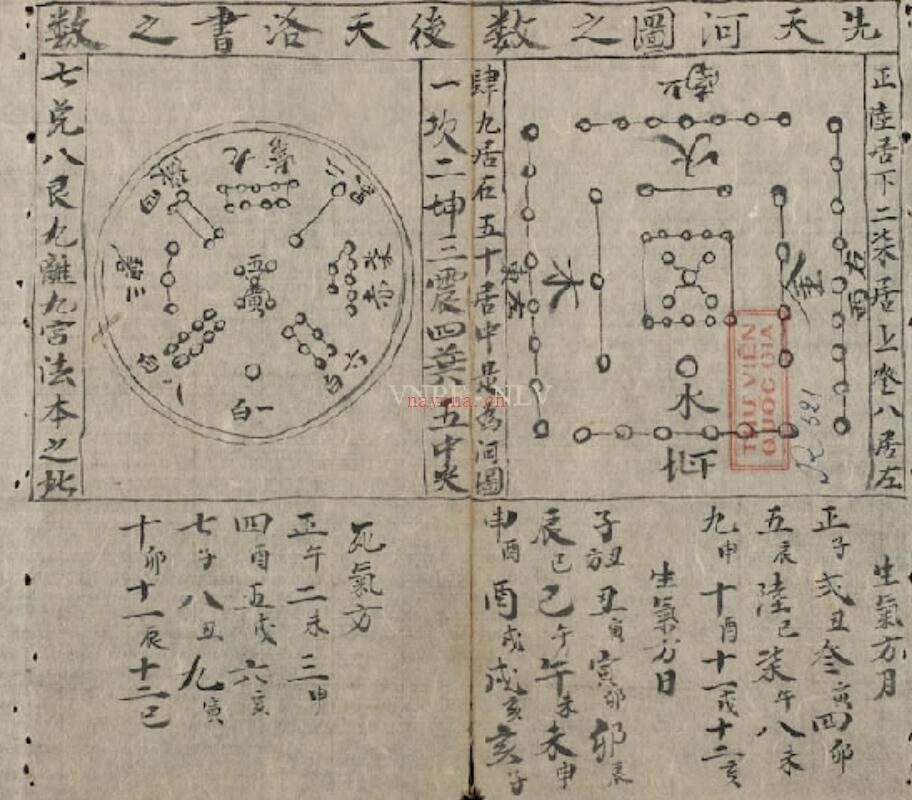 先天河圖之数後天洛書之数
正陸居下二柒居上叄八居左
肆九居右五十居中是為河圖
南
火
木
金
水
北下
R 521
THƯ VIỆN
QUỐC GIA
一坎二坤三震四巽五中央
七兌八艮九離九宮法本之此
九紫
二黑
四綠
三碧
五黃
七赤
六白
八白
一白
VNPF NLV
nayona.cn
生氣方月
正子弍丑叄寅四卯
五辰陸巳柒午八未
九申十酉十一戌十二亥
生氣方日
子丑方丑寅寅卯卯辰
辰巳巳午午未未申
申酉酉戌戌亥亥子
死氣方
正午二未三申
四酉五戌六亥
七子八丑九寅
十卯十一辰十二巳